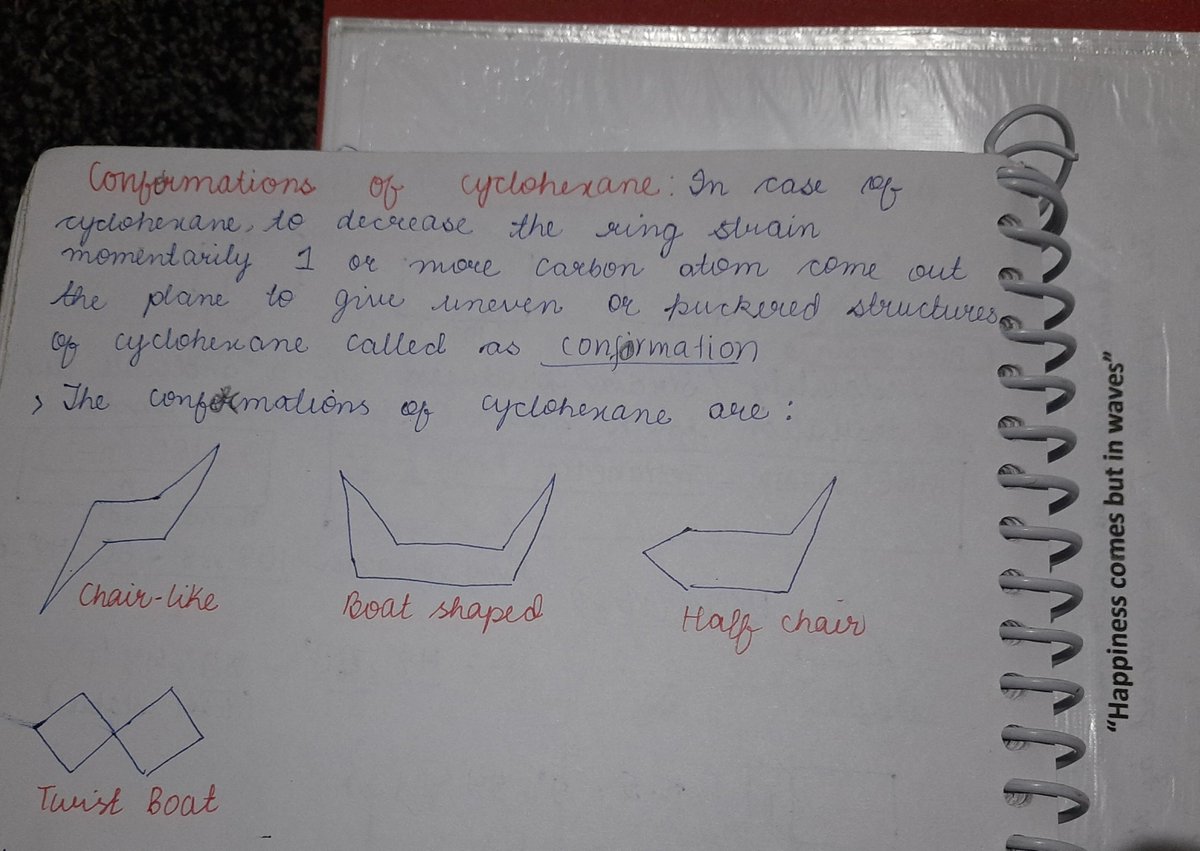 Conformations of cyclohexane: In case of
cyclohexane, to decrease the ring strain
momentarily 1 or more carbon atom come out
the plane to give uneven or puckered structures
of cyclohexane called as conformation
> The conformations of cyclohexane are:
Chair-like
Boat shaped
Half chair
Twist Boat
"Happiness comes but in waves"